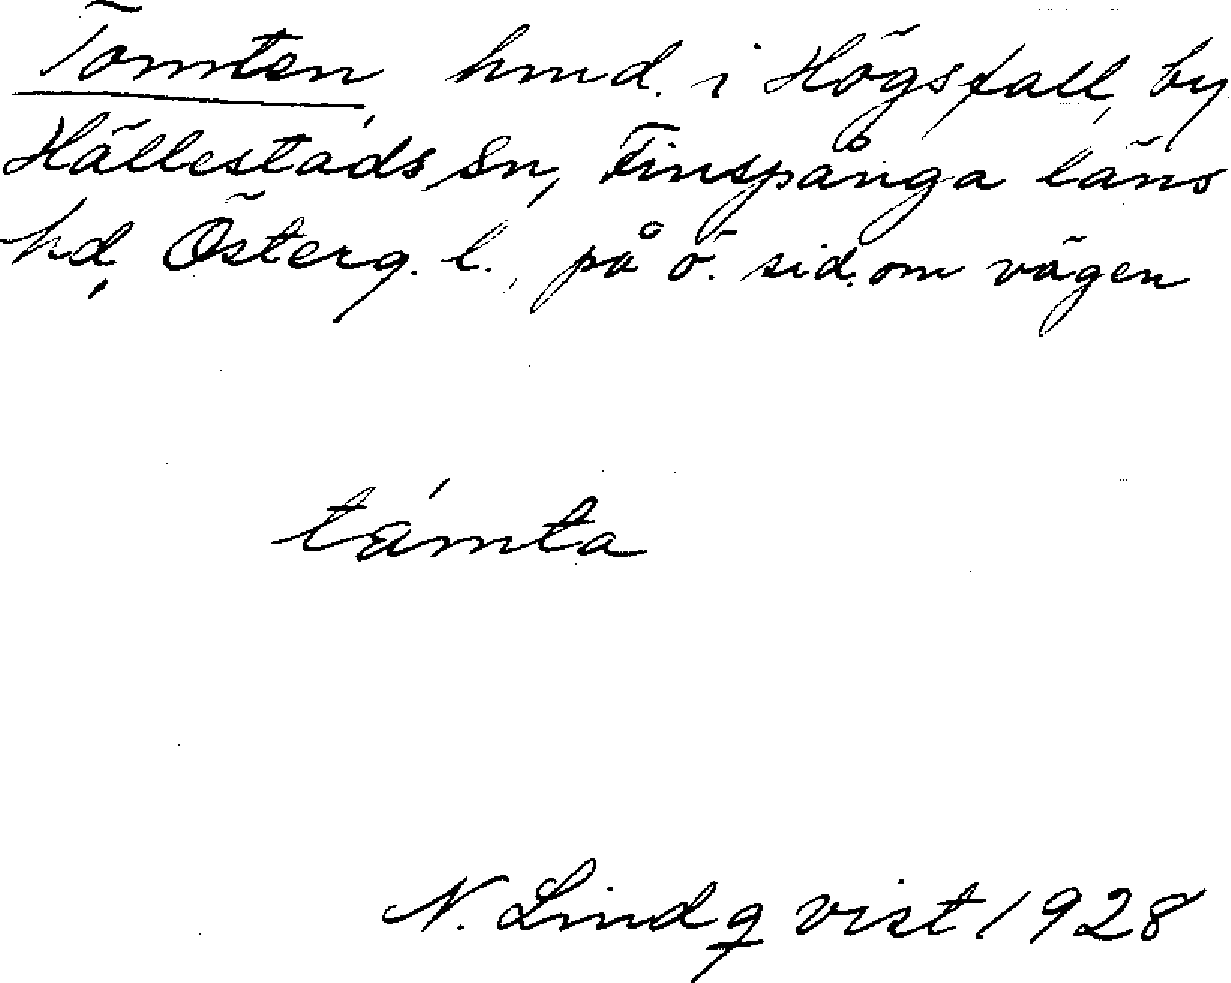 Tomten hmd. i Högsfall, by
Hällestads Sn, Finspånga läns
hd, Österg. l., på ö. sid. om vägen
támta
N. Lindqvist 1928